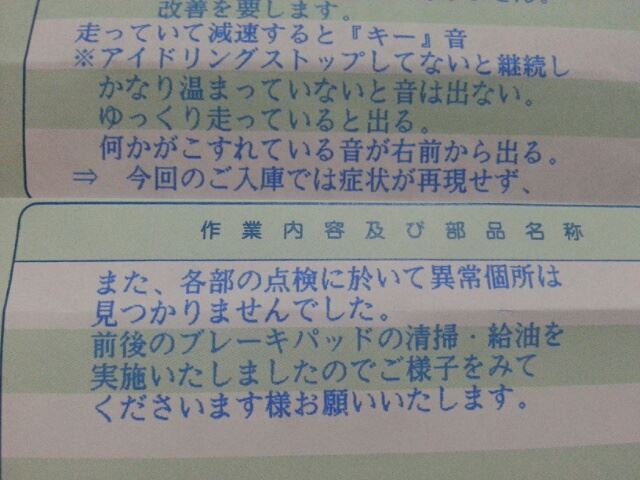 改善を要します。
走っていて減速すると『キー』音
※アイドリングストップしてないと継続し
かなり温まっていないと音は出ない。
ゆっくり走っていると出る。
何かがこすれている音が右前から出る。
⇒ 今回のご入庫では症状が再現せず、
作業内容及び部品名称
また、各部の点検に於いて異常個所は
見つかりませんでした。
前後のブレーキパッドの清掃・給油を
実施いたしましたのでご様子をみて
くださいます様お願いいたします。